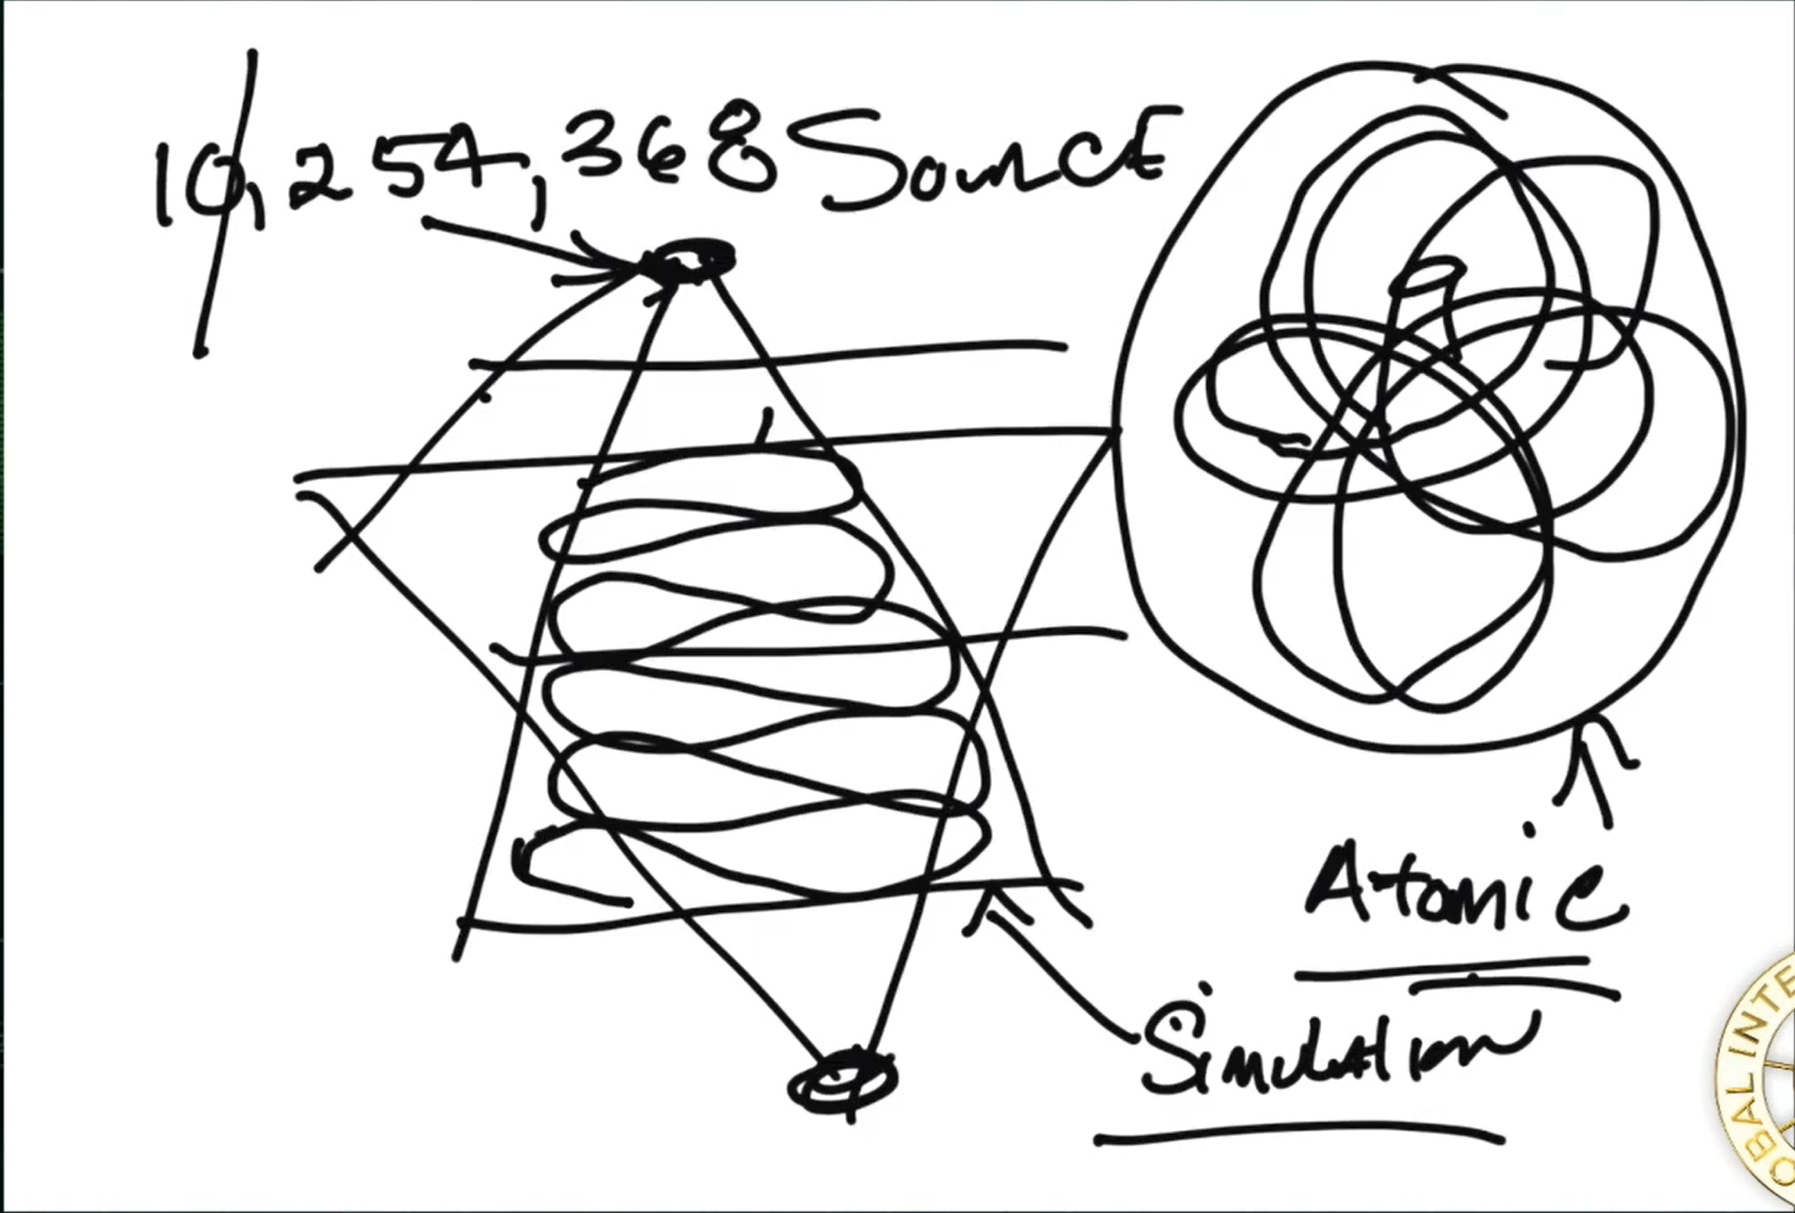 10,254,368 SourcE
Atomic
Simulation
OBAL INTE